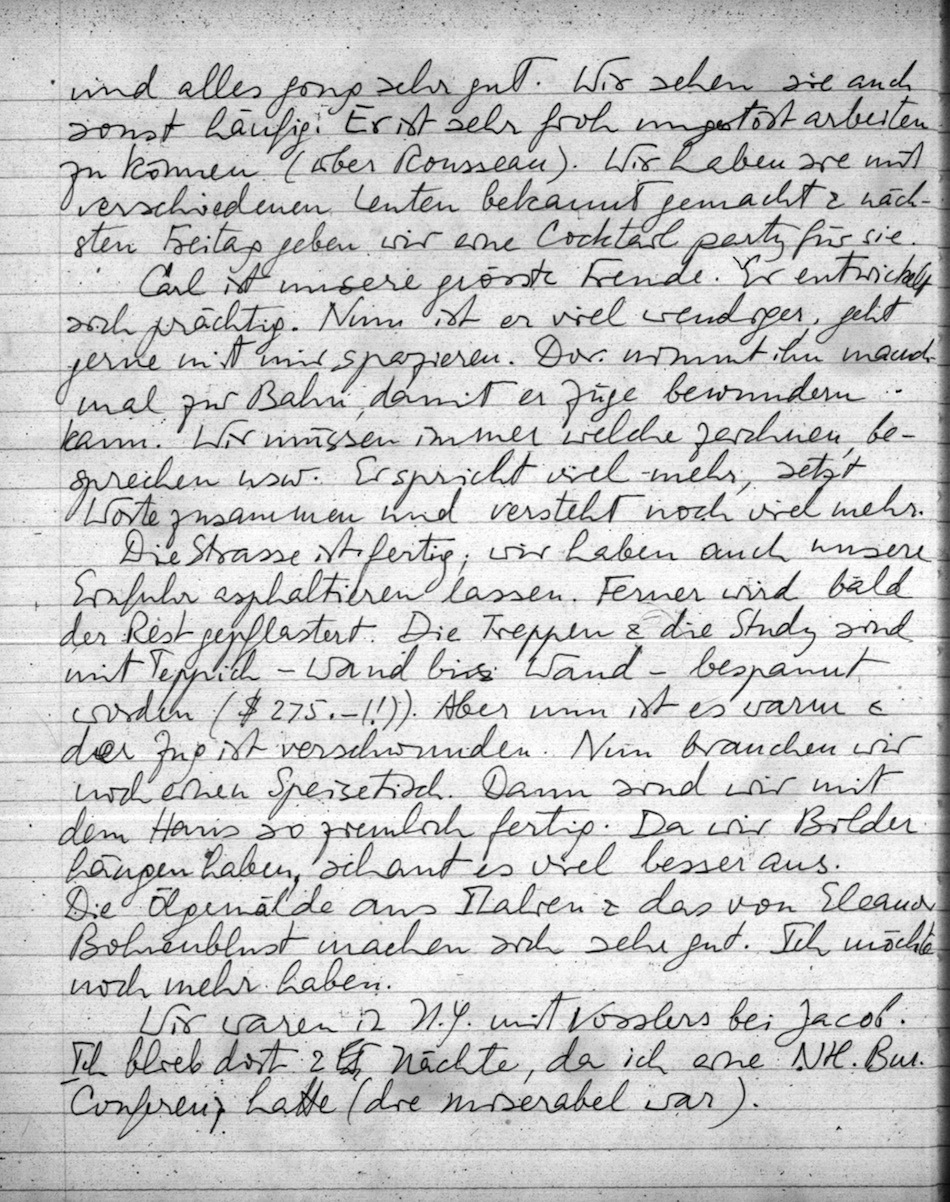 und alles ging sehr gut. Wir sehen sie auch
sonst häufig. Er ist sehr froh ungestört arbeiten
zu können (über Rousseau). Wir haben sie mit
verschiedenen Leuten bekannt gemacht & näch-
sten Freitag geben wir eine Cocktail party für sie.
Carl ist unsere grösste Freude. Er entwickelt
sich prächtig. Nun ist er viel wendiger, geht
gerne mit mir spazieren. Dor. nimmt ihn manch-
mal zur Bahn, damit er Züge bewundern
kann. Wir müssen immer welche zeichnen, be-
sprechen usw. Er spricht viel mehr, setzt
Worte zusammen und versteht noch viel mehr.
Die Strasse ist fertig; wir haben auch unsere
Einfuhr asphaltieren lassen. Ferner wird bald
der Rest gepflastert. Die Treppen & die Study sind
mit Teppich – Wand bis Wand – bespannt
worden ($ 275.–!!)). Aber nun ist es warm &
der Zug ist verschwunden. Nun brauchen wir
noch einen Speisetisch. Dann sind wir mit
dem Haus so ziemlich fertig. Da wir Bilder
hängen haben, schaut es viel besser aus.
Die Ölgemälde aus Italien & das von Eleanor
Bohnenblust machen sich sehr gut. Ich möchte
noch mehr haben.
Wir waren in N.Y. mit Vosslers bei Jacob.
Ich blieb dort 2 Nächte, da ich eine Bur.
Conferenz hatte (die miserabel war).